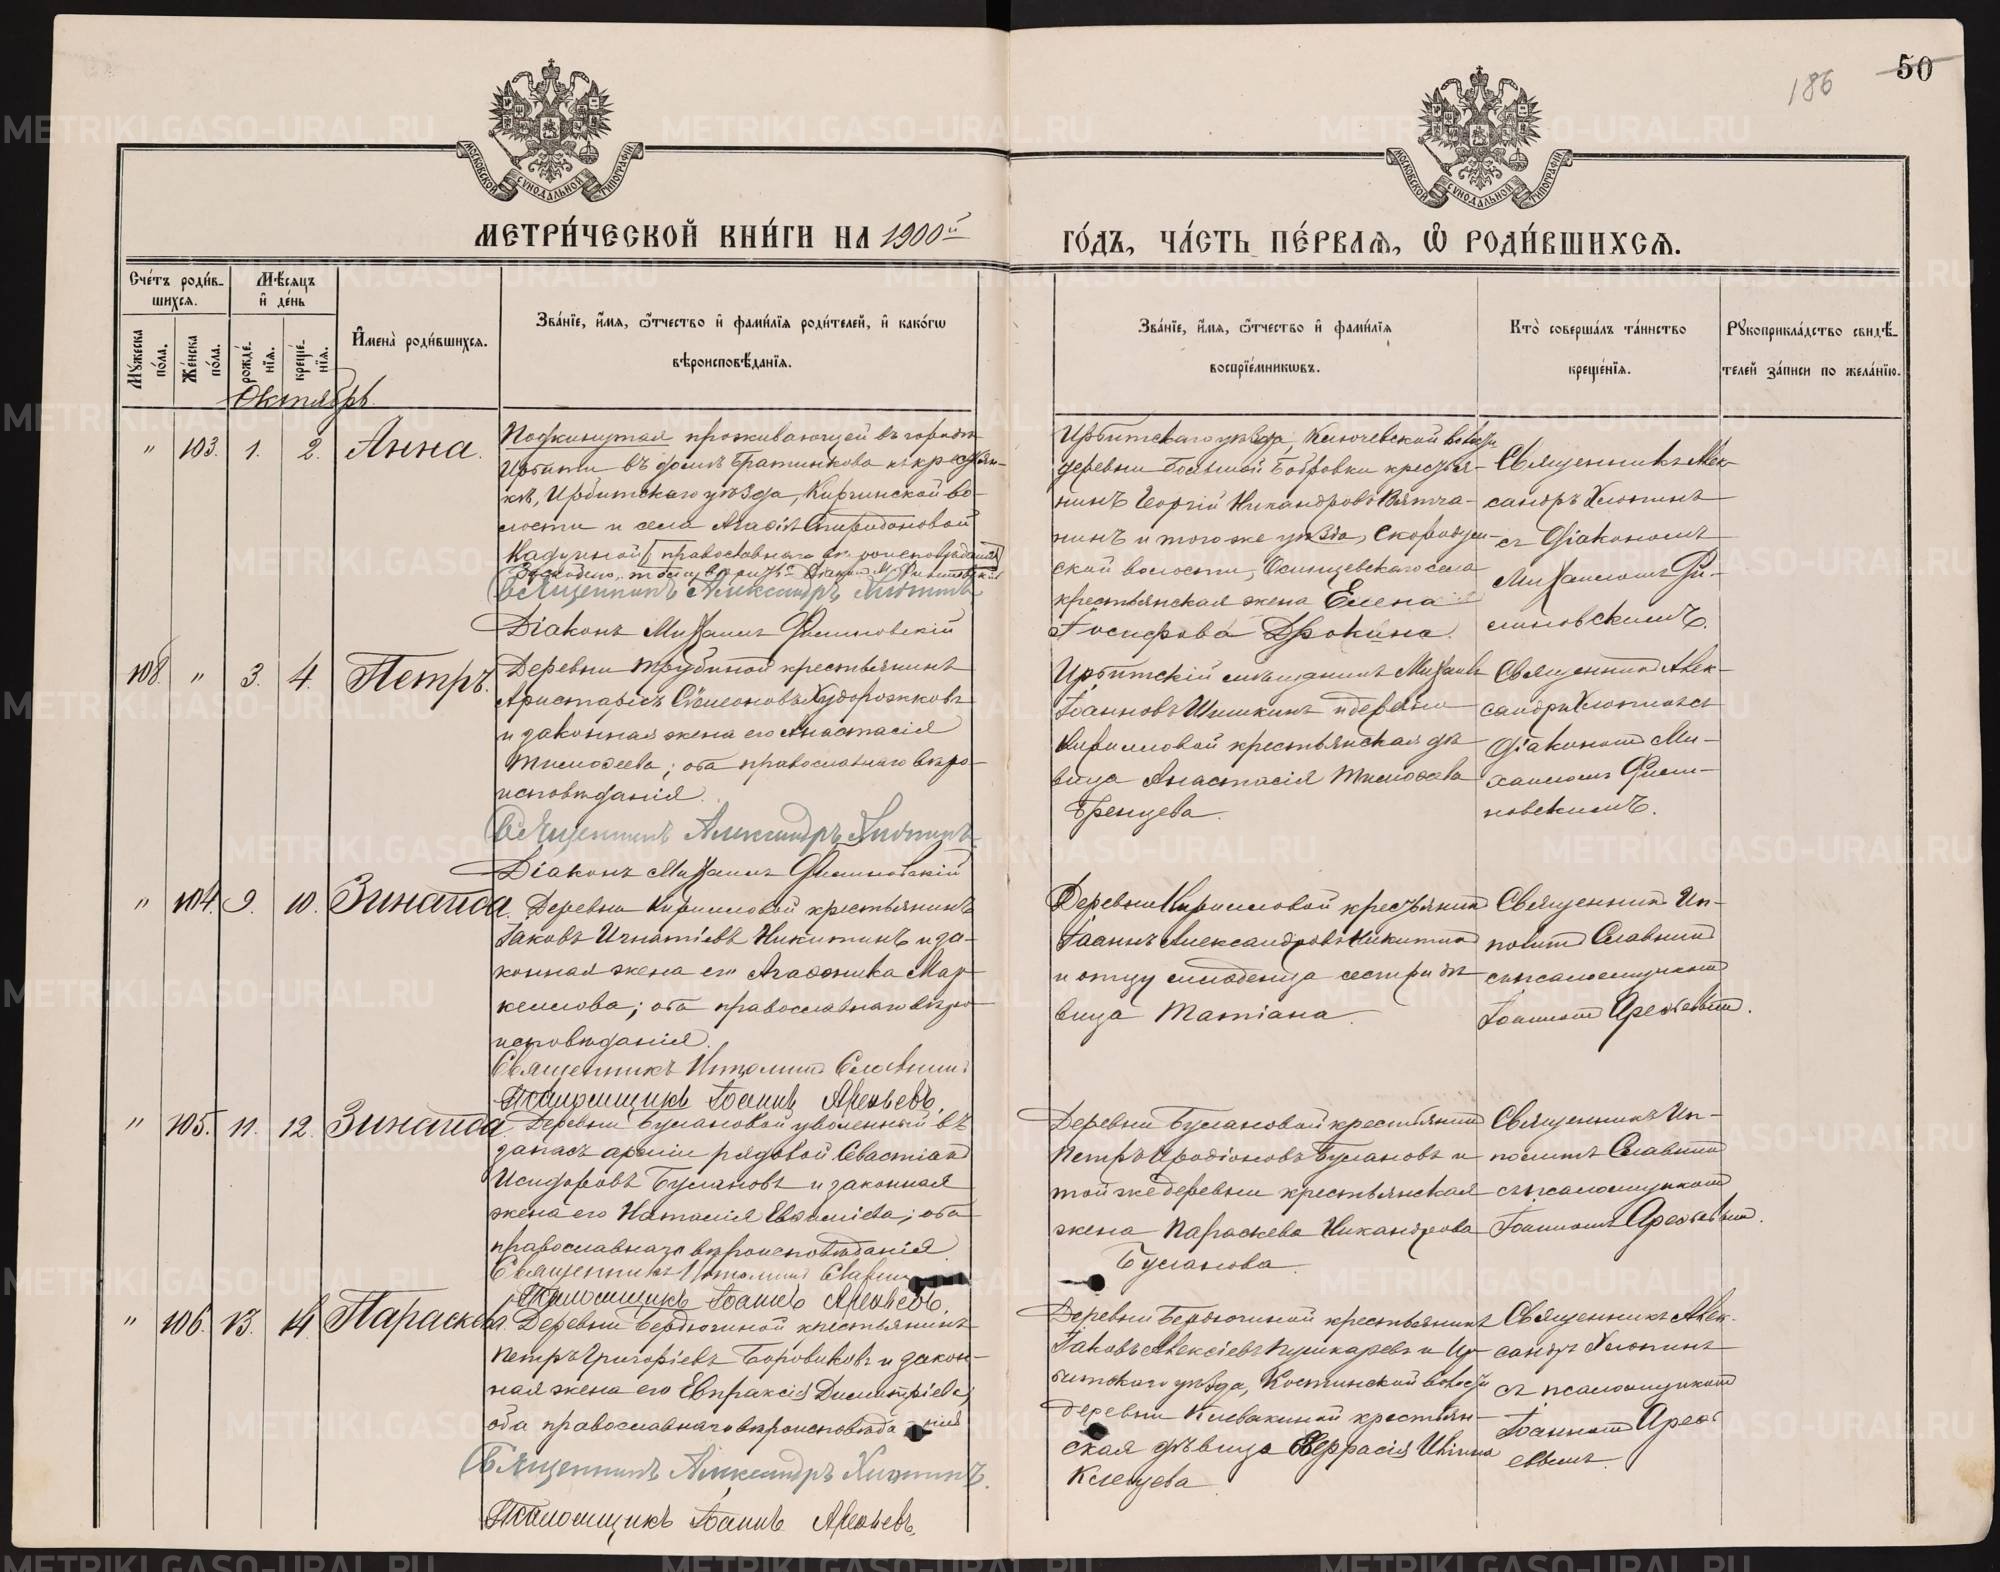 186
50
МОСКОВСКОЙ СУНОДАЛЬНОЙ ТИПОГРАФІИ
МОСКОВСКОЙ СУНОДАЛЬНОЙ ТИПОГРАФІИ
МЕТРИ́ЧЕСКОЙ КНИ́ГИ НА 1900й
ГО́ДЪ, ЧА́СТЬ ПЕ́РВАѦ, Ѡ РОДИ́ВШИХСѦ.
Сче́тъ роди́в-
шихсѧ.
Мѣ́сѧцъ
и҆ де́нь
Мꙋ́жеска по́ла.
Же́нска по́ла.
рожде́нїѧ.
креще́нїѧ.
И҆мена̀ роди́вшихсѧ.
Зва́нїе, и҆́мѧ, ѻ҆́тчество и҆ фами́лїѧ роди́телей, и҆ како́гѡ
вѣроисповѣ́данїѧ.
Зва́нїе, и҆́мѧ, ѻ҆́тчество и҆ фами́лїѧ
воспрїе́мникѡвъ.
Кто̀ соверша́лъ та́инство
креще́нїѧ.
Рꙋкоприкла́дство свидѣ́-
телей за́писи по жела́нїю.
Октябрь
" 103. 1. 2. Анна.
Подкинутая проживающей въ городѣ
Ирбити въ домѣ Братчикова крестьян-
кѣ, Ирбитскаго уѣзда, Киргинской во-
лости и села Агафіи Спиридоновой
православнаго вѣроисповѣданія
Священникъ Александръ Хлопинъ
Діаконъ Михаилъ Филиновскій
Ирбитскаго уѣзда, Ключевской волости
деревни Большой Бобровки крестья-
нинъ Георгій Никандровъ Вятча-
нинъ и того же уѣзда, Скородум-
ской волости, Осинцевскаго села
крестьянская жена Елена
Іосифова Дрокина.
Священникъ Алек-
сандръ Хлопинъ
съ діакономъ
Михаиломъ Фи-
линовскимъ.
108. " 3. 4. Петръ.
Деревни Трубиной крестьянинъ
Аристархъ Симеоновъ Худорожковъ
и законная жена его Анастасія
Тимофеева; оба православнаго вѣро-
исповѣданія.
Священникъ Александръ Хлопинъ
Діаконъ Михаилъ Филиновскій
Ирбитскій мѣщанинъ Михаилъ
Іоанновъ Шишкинъ и деревни
Кирилловой крестьянская дѣ-
вица Анастасія Тимофеева
Бренцева.
Священникъ Алек-
сандръ Хлопинъ съ
діакономъ Ми-
хаиломъ Фили-
новскимъ.
" 104. 9. 10. Зинаида.
Деревни Кирилловой крестьянинъ
Іаковъ Игнатіевъ Никитинъ и за-
конная жена его Агафоника Мар-
келлова; оба православнаго вѣро-
исповѣданія.
Священникъ Ипполитъ Славнинъ
Псаломщикъ Іоаннъ Арефьевъ.
Деревни Кирилловой крестьянинъ
Іоаннъ Александровъ Никитинъ
и отцу младенца сестра дѣ-
вица Татіана.
Священникъ Ип-
политъ Славнинъ
съ псаломщикомъ
Іоанномъ Арефьевымъ.
" 105. 11. 12. Зинаида
Деревни Булановой уволенный въ
запасъ арміи рядовой Севастіанъ
Исидоровъ Булановъ и законная
жена его Наталія Евфиміева; оба
православнаго вѣроисповѣданія.
Священникъ Ипполитъ Славнинъ
Псаломщикъ Іоаннъ Арефьевъ.
Деревни Булановой крестьянинъ
Петръ Иродіоновъ Булановъ и
той же деревни крестьянская
жена Параскева Никандрова
Буланова.
Священникъ Ип-
политъ Славнинъ
съ псаломщикомъ
Іоанномъ Арефьевымъ.
" 106. 13. 14. Параскева.
Деревни Бердюгиной крестьянинъ
Петръ Григоріевъ Боровиковъ и закон-
ная жена его Евпраксія Димитріева;
оба православнаго вѣроисповѣданія
Священникъ Александръ Хлопинъ.
Псаломщикъ Іоаннъ Арефьевъ.
Деревни Бердюгиной крестьянинъ
Іаковъ Алексіевъ Пушкаревъ и Ир-
битскаго уѣзда, Костинской волости
деревни Клевакиной крестьян-
ская дѣвица
Клещева
Священникъ Алек-
сандръ Хлопинъ
съ псаломщикомъ
Іоанномъ Ареф-
евымъ.
METRIKI.GASO-URAL.RU